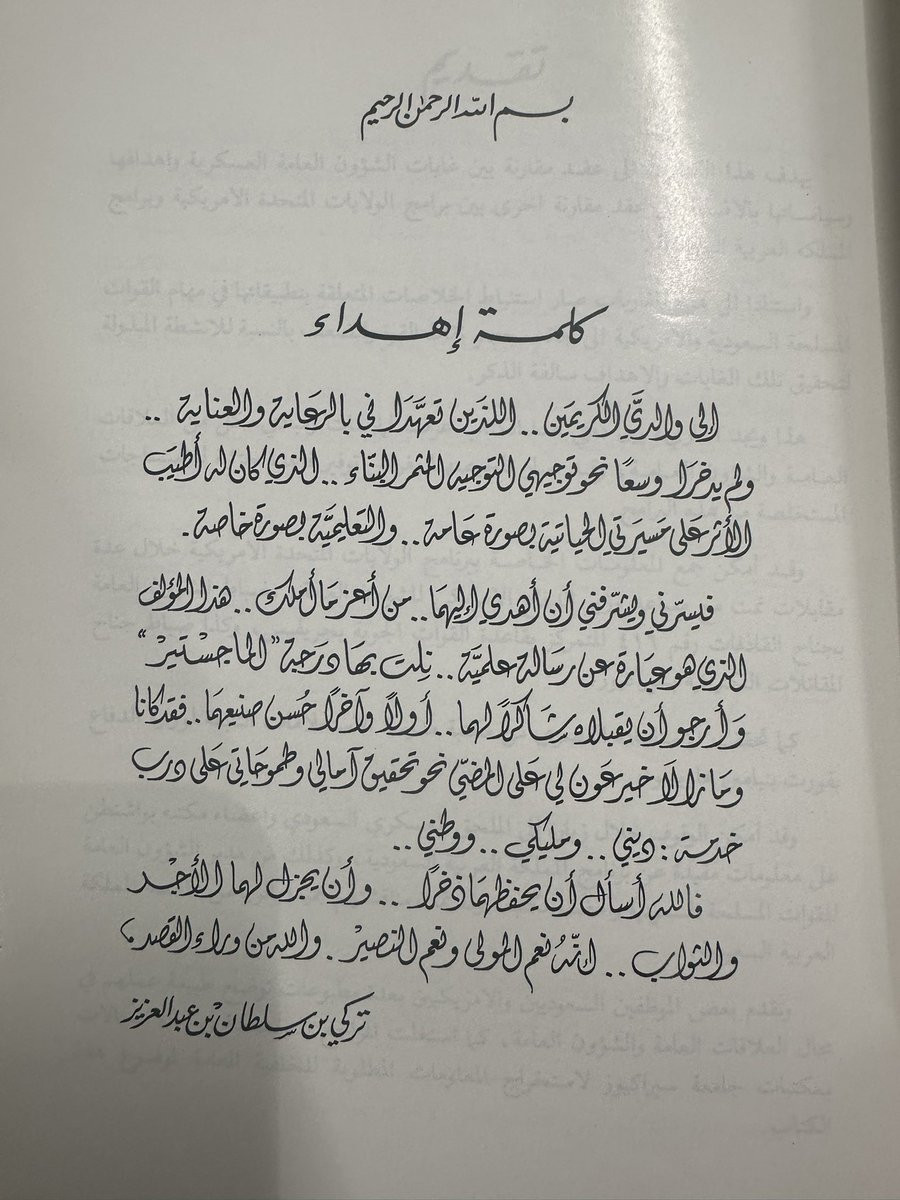 بسم الله الرحمن الرحيم
كلمة إهداء
الى والديَّ الكريمين .. اللذَين تعهَّدَا في بالرعاية والعناية ..
ولم يدخرَا وسعًا نحو توجيهي التوجيه المثمر البنّاء .. الذي كان له أطيَب
الأثر على مَسيرَتي الحياتية بصورة عَامة .. والتعليميَّة بصورة خاصة .
فيسرّني ويشرّفني أن أهدي إليهمَا .. من أعز مَا أملك .. هذا المؤلف
الذي هو عبَارة عن رسَالة علميَّة .. نِلت بهَا درَجة "الماجستير"
وَأرجو أن يقبلاه شَاكرًا لهما .. أولاً وآخرًا حُسن صنيعهمَا .. فقد كانا
ومَازالاَ خير عَون لي على المضيّ نحو تحقيق آمالي وطموحَاتي على درب
خدمة : ديني .. ومليكي .. ووطني ..
فالله أسأل أن يحفظهمَا ذخرًا .. وأن يجزل لهما الأجْر
والثواب .. انّهُ نعم المولى ونعم النصير . والله من وراء القصد ،
تركي بن سلطان بن عبد العزيز